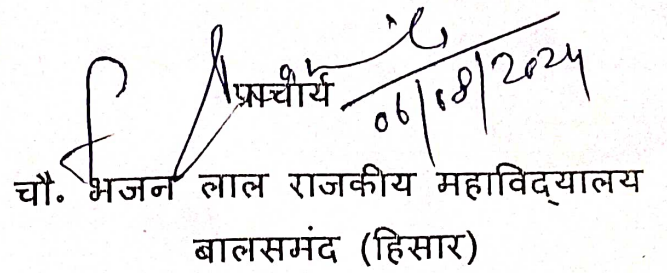 प्राचार्य 06/08/2024
चौ. भजन लाल राजकीय महाविद्यालय
बालसमंद (हिसार)